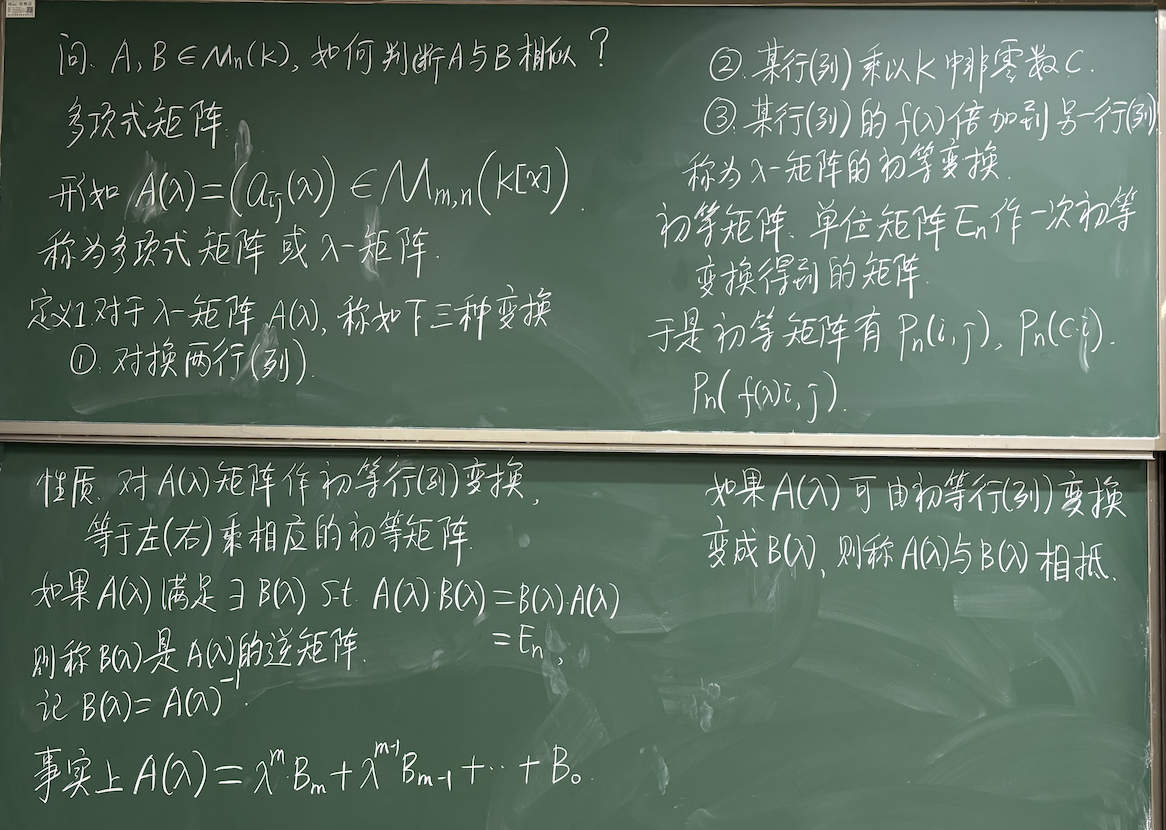 问. A, B ∈ Mn(K), 如何判断A与B相似？
多项式矩阵.
形如 A(λ) = (aij(λ)) ∈ Mm,n(K[x]).
称为多项式矩阵或λ-矩阵.
定义1.对于λ-矩阵A(λ), 称如下三种变换
①. 对换两行(列).
②. 某行(列)乘以K中非零数C.
③. 某行(列)的f(λ)倍加到另一行(列)
称为λ-矩阵的初等变换.
初等矩阵. 单位矩阵En作一次初等
变换得到的矩阵.
于是初等矩阵有Pn(i,j), Pn(c·i).
Pn(f(λ)i,j).
性质. 对A(λ)矩阵作初等行(列)变换,
等于左(右)乘相应的初等矩阵.
如果A(λ)满足∃B(λ) s.t. A(λ)·B(λ)=B(λ)·A(λ)
=En,
则称B(λ)是A(λ)的逆矩阵.
记 B(λ)=A(λ)⁻¹.
事实上A(λ)=λᵐ·Bm+λᵐ⁻¹Bm-1+···+B₀.
如果A(λ)可由初等行(列)变换
变成B(λ), 则称A(λ)与B(λ)相抵.